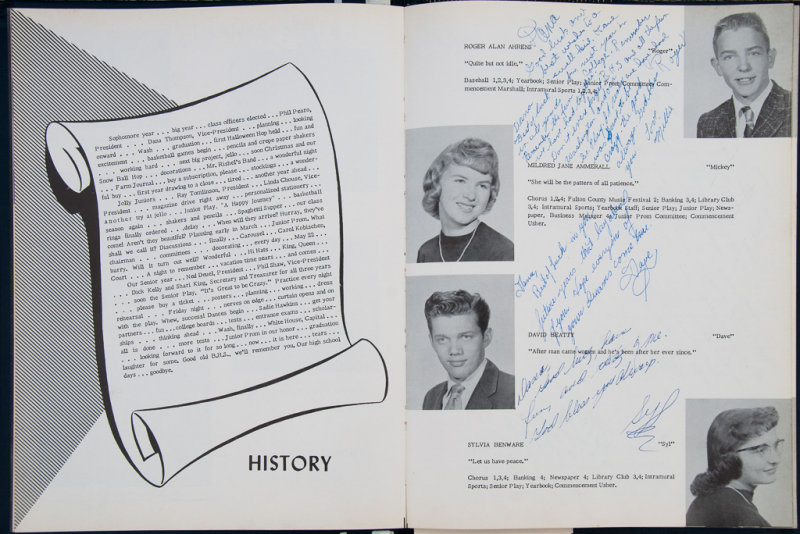 Sophomore year . . . big year . . . class officers elected . . . Phil Pears,
President . . . Dana Thompson, Vice-President . . . planning . . . looking
onward . . . Wash . . . graduation . . . first Halloween Hop held . . . fun and
excitement . . . basketball games begin . . . pencils and crepe paper shakers
. . . working hard . . . next big project, jello . . . soon Christmas and our
Snow Ball Hop . . . decorations . . . Mr. Rishel's Band . . . a wonderful night
. . . Farm Journal . . . buy a subscription, please . . . stockings . . . a wonder-
ful buy . . . first year drawing to a close . . . tired . . . another year ahead . . .
Jolly Juniors . . . Ray Tomlinson, President . . . Linda Chouse, Vice-
President . . . magazine drive right away . . . personalized stationery . . .
another try at jello . . . Junior Play, "A Happy Journey" . . . basketball
season again . . . shakers and pencils . . . Spaghetti Supper . . . our class
rings finally ordered . . . delay . . . When will they arrive? Hurray, they've
come! Aren't they beautiful? Planning early in March . . . Junior Prom. What
shall we call it? Discussions . . . finally . . . Carousel . . . Carol Kobischen,
chairman . . . committees . . . decorating . . . every day . . . May 23 . . .
hurry. Will it turn out well? Wonderful . . . Hi Hats . . . King, Queen . . .
Court . . . A night to remember . . . vacation time nears . . . and comes . . .
Our Senior year . . . Ned Deuel, President . . . Phil Shaw, Vice-President
. . . Dick Kelly and Shari King, Secretary and Treasurer for all three years
. . . soon the Senior Play, "It's Great to be Crazy." Practice every night
. . . please buy a ticket . . . posters . . . planning . . . working . . . dress
rehearsal . . . Friday night . . . nerves on edge . . . curtain opens and on
with the play. Whew, success! Dances begin . . . Sadie Hawkins . . . get your
partners . . . fun . . . college boards . . . tests . . . entrance exams . . . scholar-
ships . . . thinking ahead . . . Wash, finally . . . White House, Capital . . .
all is done . . . more tests . . . Junior Prom in our honor . . . graduation
. . . looking forward to it for so long . . . now . . . it is here . . . tears . . .
laughter for some. Good old B.H.S., we'll remember you. Our high school
days . . . goodbye.
HISTORY
ROGER ALAN AHRENS "Roger"
"Quite but not idle."
Baseball 1,2,3,4; Yearbook; Senior Play; Junior Prom Committee; Com-
mencement Marshall; Intramural Sports 1,2,3,4.
MILDRED JANE AMMERALL "Mickey"
"She will be the pattern of all patience."
Chorus 1,2,4; Fulton County Music Festival 2; Banking 3,4; Library Club
3,4; Intramural Sports; Yearbook Staff; Senior Play; Junior Play; News-
paper, Business Manager 4; Junior Prom Committee; Commencement
Usher.
DAVID BEATTY "Dave"
"After man came woman and he's been after her ever since."
Dave
SYLVIA BENWARE "Syl"
"Let us have peace."
Chorus 1,3,4; Banking 4; Newspaper 4; Library Club 3,4; Intramural
Sports; Senior Play; Yearbook; Commencement Usher.